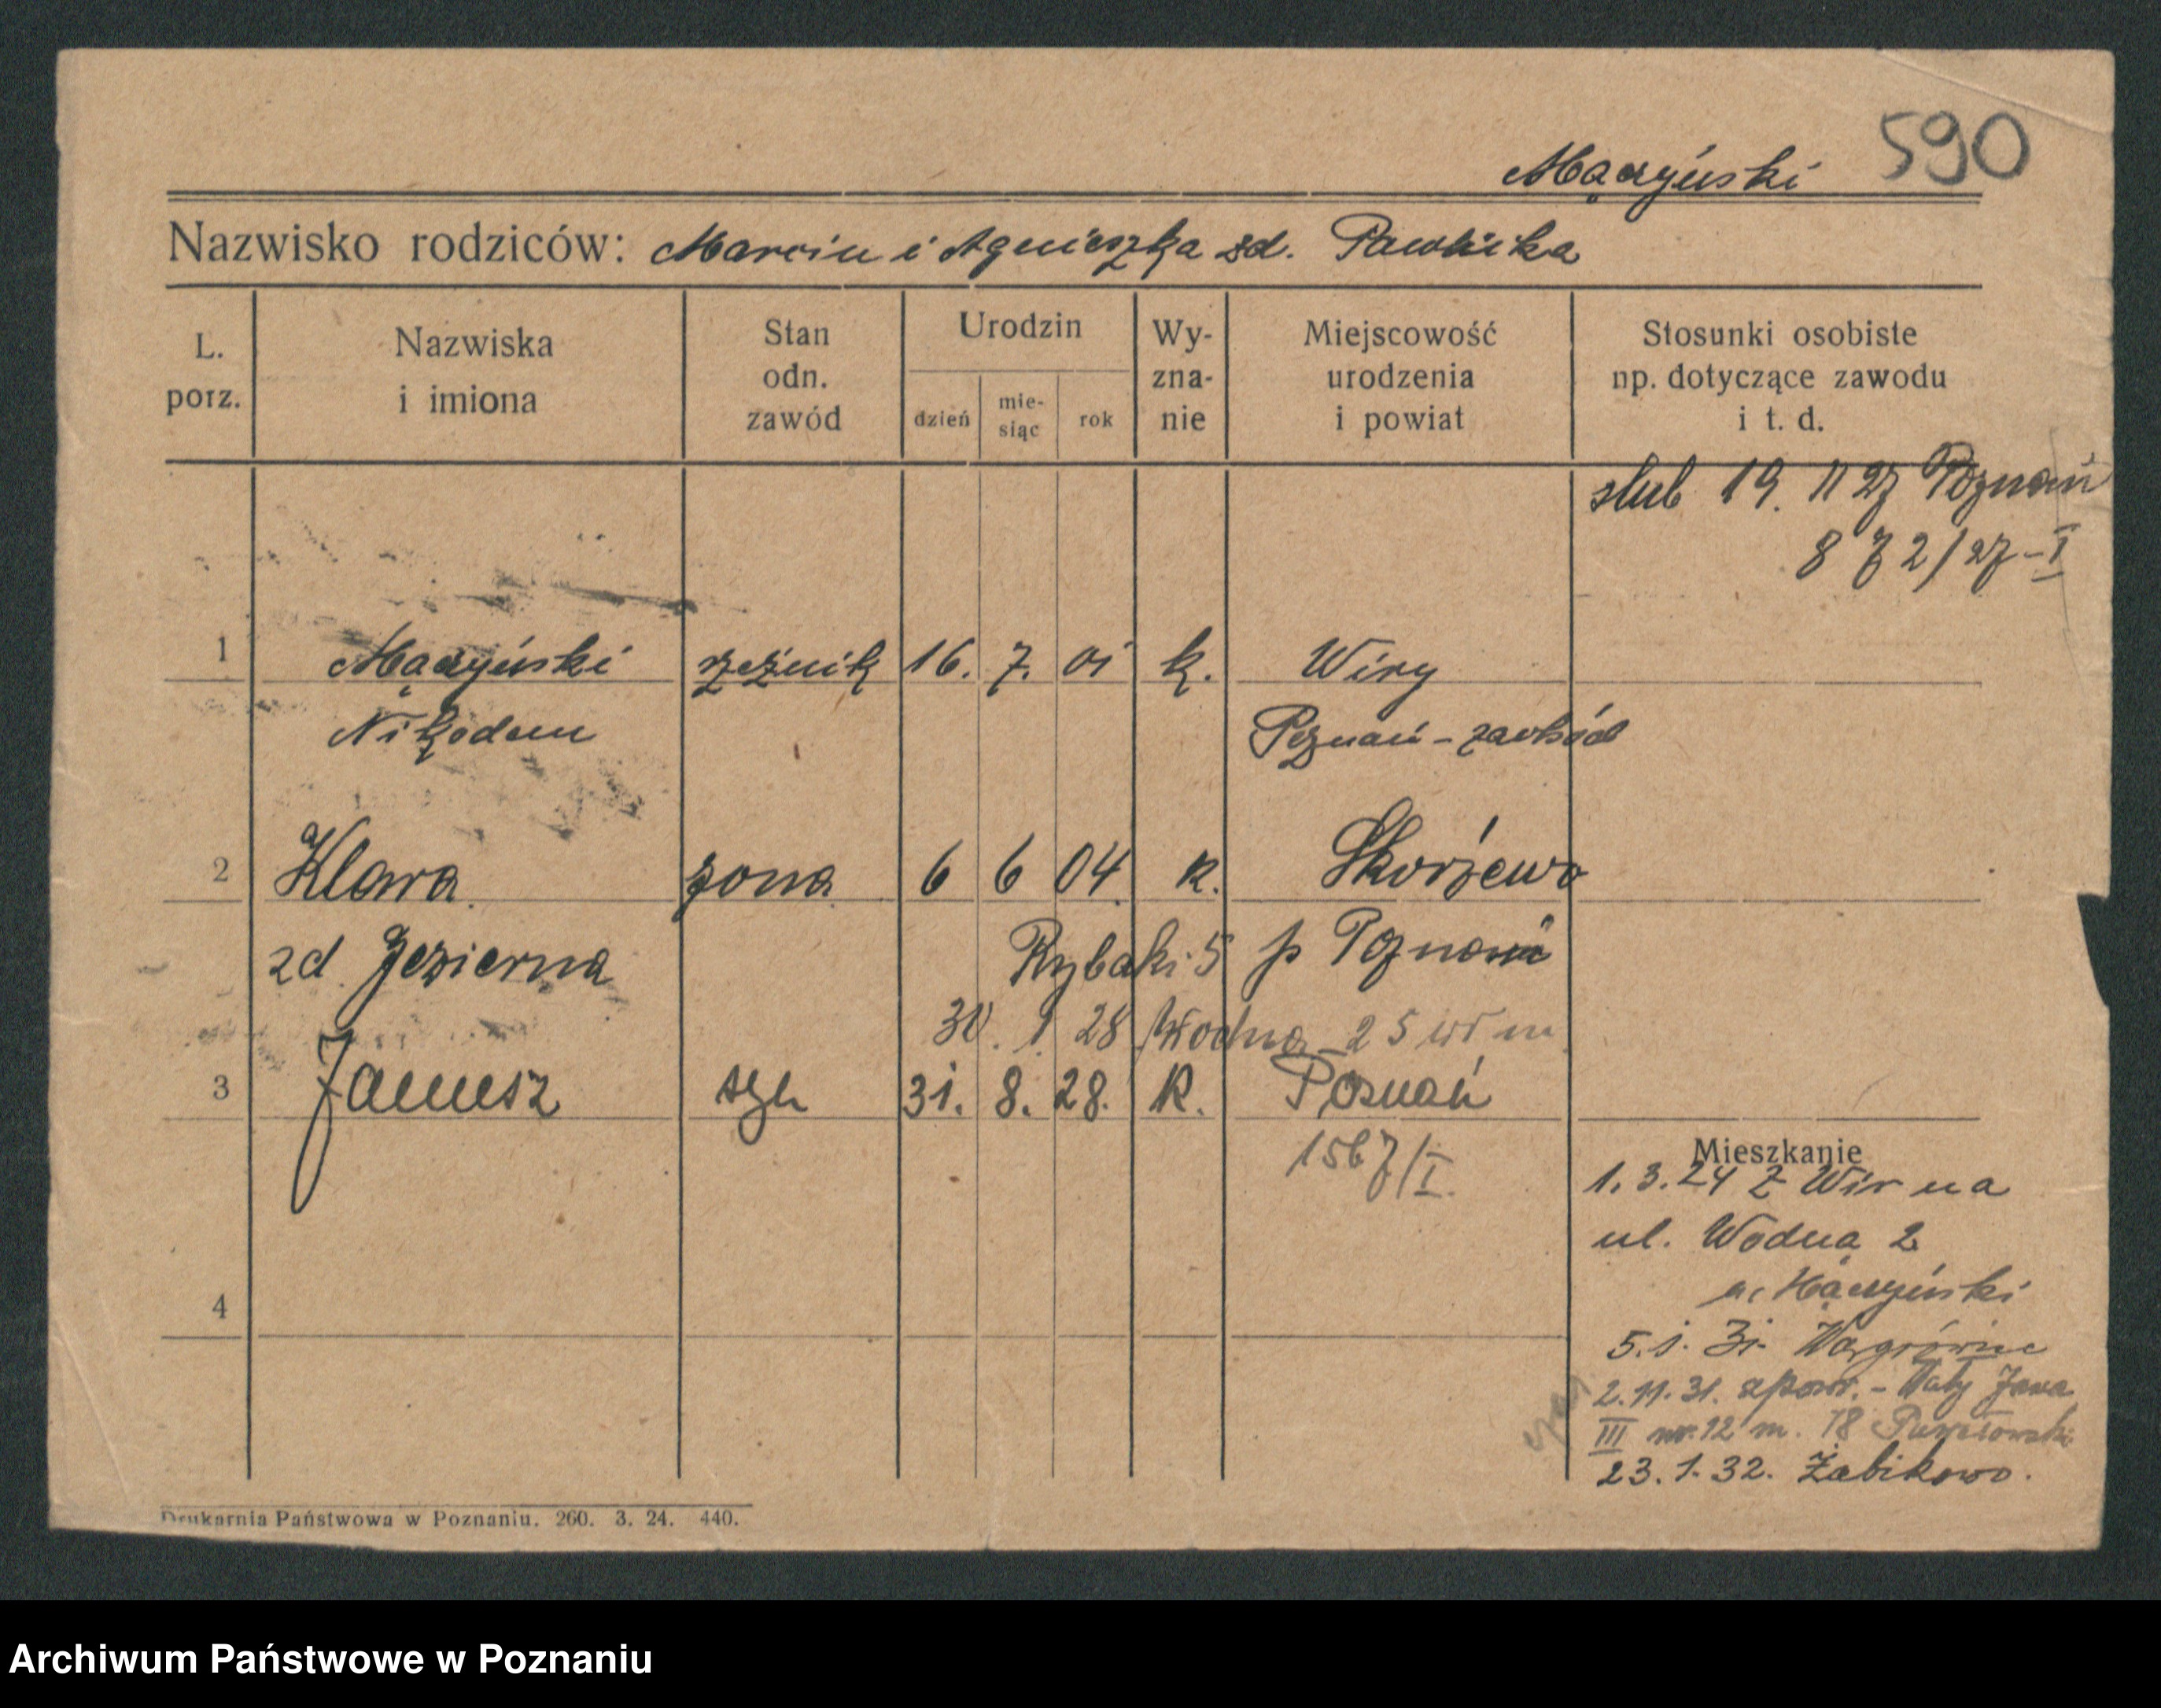 590
Mączyński
Nazwisko rodziców: Marcin i Agnieszka zd. Pawlicka
L. porz.
Nazwiska i imiona
Stan odn. zawód
Urodzin
dzień
mie-siąc
rok
Wy-zna-nie
Miejscowość urodzenia i powiat
Stosunki osobiste np. dotyczące zawodu i t. d.
slub 19. 11 27 Poznań
872/27-I
1 Mączyński rzeźnik 16. 7. 01 k. Wiry
Nikodem Poznań-zachód
2 Klara żona 6 6 04 k. Skórzewo
zd. Jezierna Rybaki 5 p Poznań
30. 1. 28 Wodna 25
3 Janusz syn 31. 8. 28. K. Poznań
1567/I.
Mieszkanie
1. 3. 24 Z Wir na
ul. Wodna 2
u. Mączyński
4
5. 1. 31.
2. 11. 31. zpowr. - Wały Jana
III nr. 12 m. 18
23. 1. 32. Żabikowo.
Drukarnia Państwowa w Poznaniu. 260. 3. 24. 440.
Archiwum Państwowe w Poznaniu